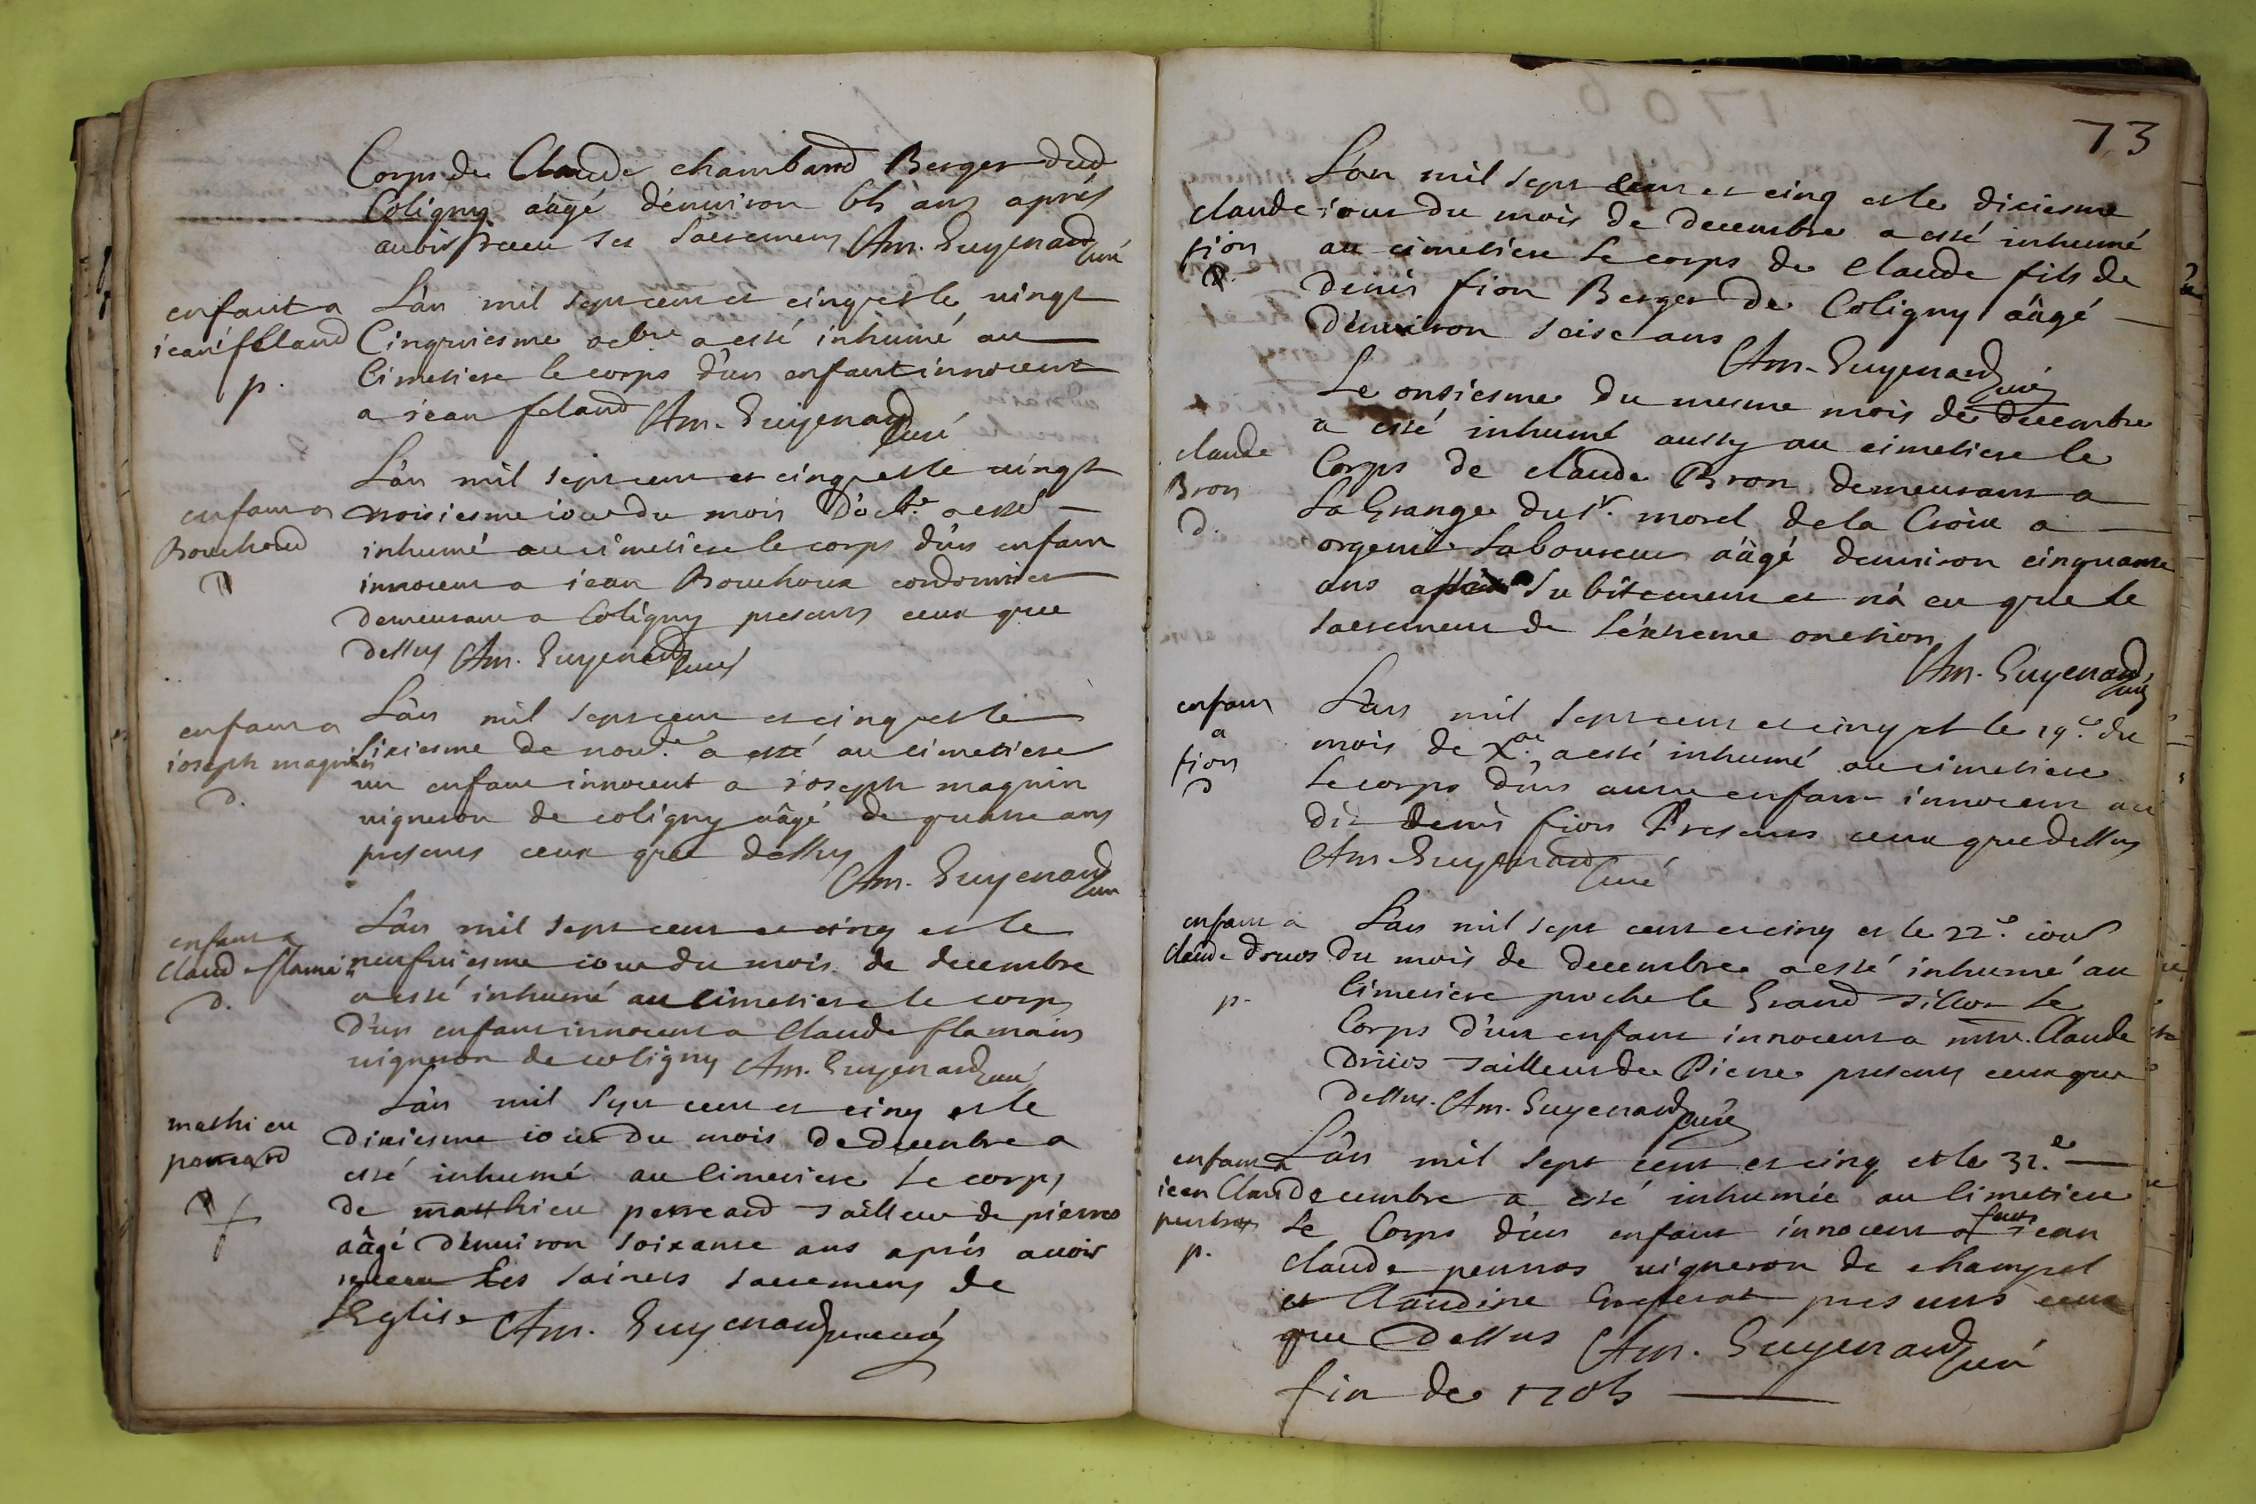 Corps de Claude chambard Berger dud
Coligny aâgé d'enuiron 65 ans aprés
auoir receu ses sacremens Am. Guyenard curé
enfant a
jean feland
p.
L'an mil sept cent et cinq et le uingt
Cinquiesme octbre a esté inhumé au
Cimetiere le corps d'un enfant innocent
a jean feland Am. Guyenard curé
enfant a
Bouchoud
D
L'an mil sept cent et cinq et le uingt
jour du mois d'octbre a esté
inhumé au cimetiere le corps d'un enfant
innocent a jean Bouchoux cordonnier
demeurant a Coligny presents ceux que
dessus Am. Guyenard curé
enfant a
joseph magnin
D.
L'an mil sept cent et cinq et le
sixiesme de nou.e a esté au cimetiere
un enfant innocent a joseph magnin
uigneron de coligny aâgé de quatre ans
presents ceux que dessus
Am. Guyenard curé
enfant a
Claude flamain
D.
L'an mil sept cent et cinq et le
neufuiesme jour du mois de decembre
a esté inhumé au Cimetiere le corps
d'un enfant innocent a Claude flamain
uigneron de coligny Am. Guyenard curé
mathieu
perreard
D
L'an mil sept cent et cinq et le
dixiesme jour du mois de decembre a
esté inhumé au Cimetiere le corps
de matthieu perreard tailleur de pierres
aâgé d'enuiron soixante ans aprés auoir
receu les saincts sacremens de
l'Eglise Am. Guyenard curé
73
claude
fion
D.
L'an mil sept cent et cinq et le diziesme
jour du mois de decembre a esté inhumé
au cimetiere le corps de claude fils de
denis fion Berger de Coligny aâgé
d'enuiron seise ans
Am. Guyenard curé
claude
Bron
D.
Le onsiesme du mesme mois de decembre
a esté inhumé aussy au cimetiere le
Corps de claude Bron demeurant a
la Grange du Sr. morel de la Croix a
orgent Laboureur aâgé denuiron cinquante
ans subitement et n'a eu que le
sacrement de l'extreme onction
Am. Guyenard curé
enfant
a
fion
D
L'an mil sept cent et cinq et le 19.e du
mois de Xbre a esté inhumé au cimetiere
le corps d'un autre enfant innocent au
dit denis fion Presents ceux que dessus
Am. Guyenard curé
enfant a
claude druos
p.
L'an mil sept cent et cinq et le 22.e jour
du mois de decembre a esté inhumé au
Cimetiere proche le Grand tillot le
Corps d'un enfant innocent a Claude
druos tailleur de Pierre presents ceux que
dessus. Am. Guyenard curé
enfant a
jean Claude
p.
L'an mil sept cent et cinq et le 31.e
decembre a esté inhumée au Cimetiere
le Corps d'un enfant innocent a feu jean
claude pennas uigneron de champel
et Claudine presents ceux
que dessus Am. Guyenard curé
fin de 1705